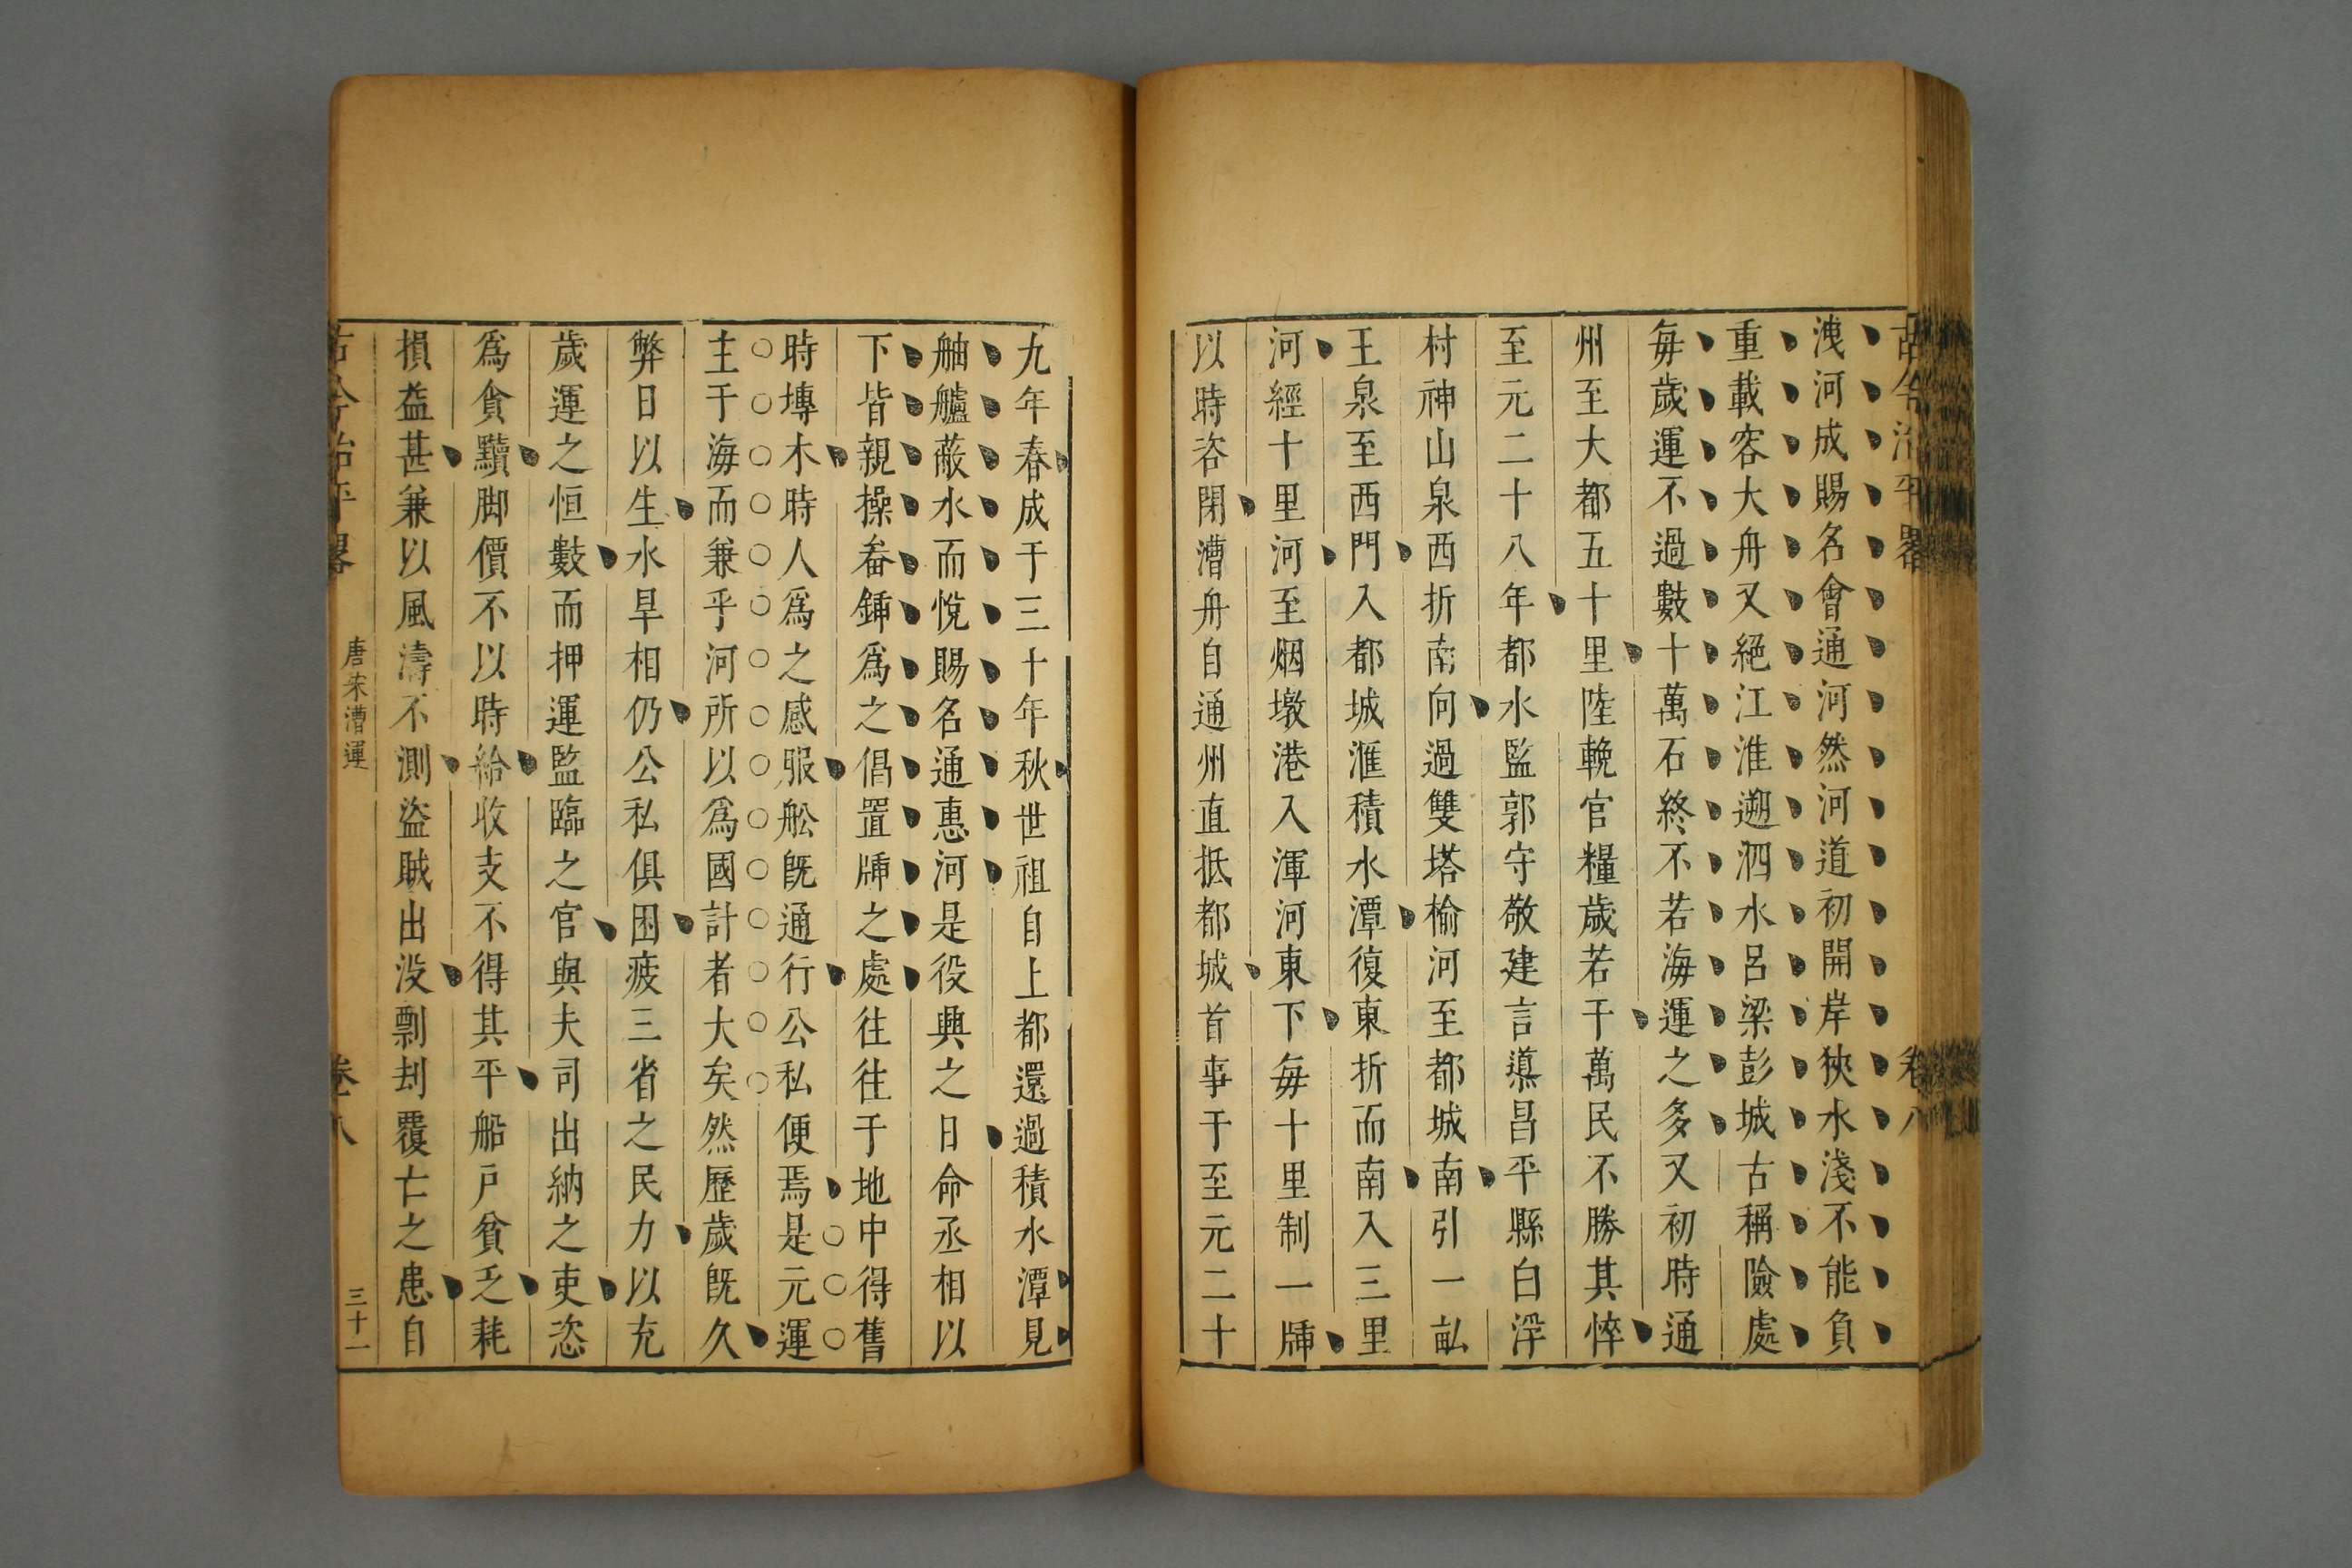 古今治平畧
卷八
洩河成賜名會通河然河道初開岸狹水淺不能負
重載容大舟又絕江淮遡泗水呂梁彭城古稱險處
每歲運不過數十萬石終不若海運之多又初時通
州至大都五十里陸輓官糧歲若干萬民不勝其悴
至元二十八年都水監郭守敬建言導昌平縣白浮
村神山泉西折南向過雙塔榆河至都城南引一畝
王泉至西門入都城滙積水潭復東折而南入三里
河經十里河至烟墩港入渾河東下每十里制一牐
以時咨閉漕舟自通州直抵都城首事于至元二十
九年春成于三十年秋世祖自上都還過積水潭見
舳艫蔽水而悅賜名通惠河是役興之日命丞相以
下皆親操畚鍤爲之倡置牐之處往往于地中得舊
時塼木時人爲之感服舩既通行公私便焉是元運
主于海而兼乎河所以爲國計者大矣然歷歲既久
弊日以生水旱相仍公私俱困疲三省之民力以充
歲運之恒數而押運監臨之官與夫司出納之吏恣
爲貪黷脚價不以時給收支不得其平船戶貧乏耗
損益甚兼以風濤不測盜賊出没剽刦覆亡之患自
古今治平畧
唐宋漕運
卷八
三十一